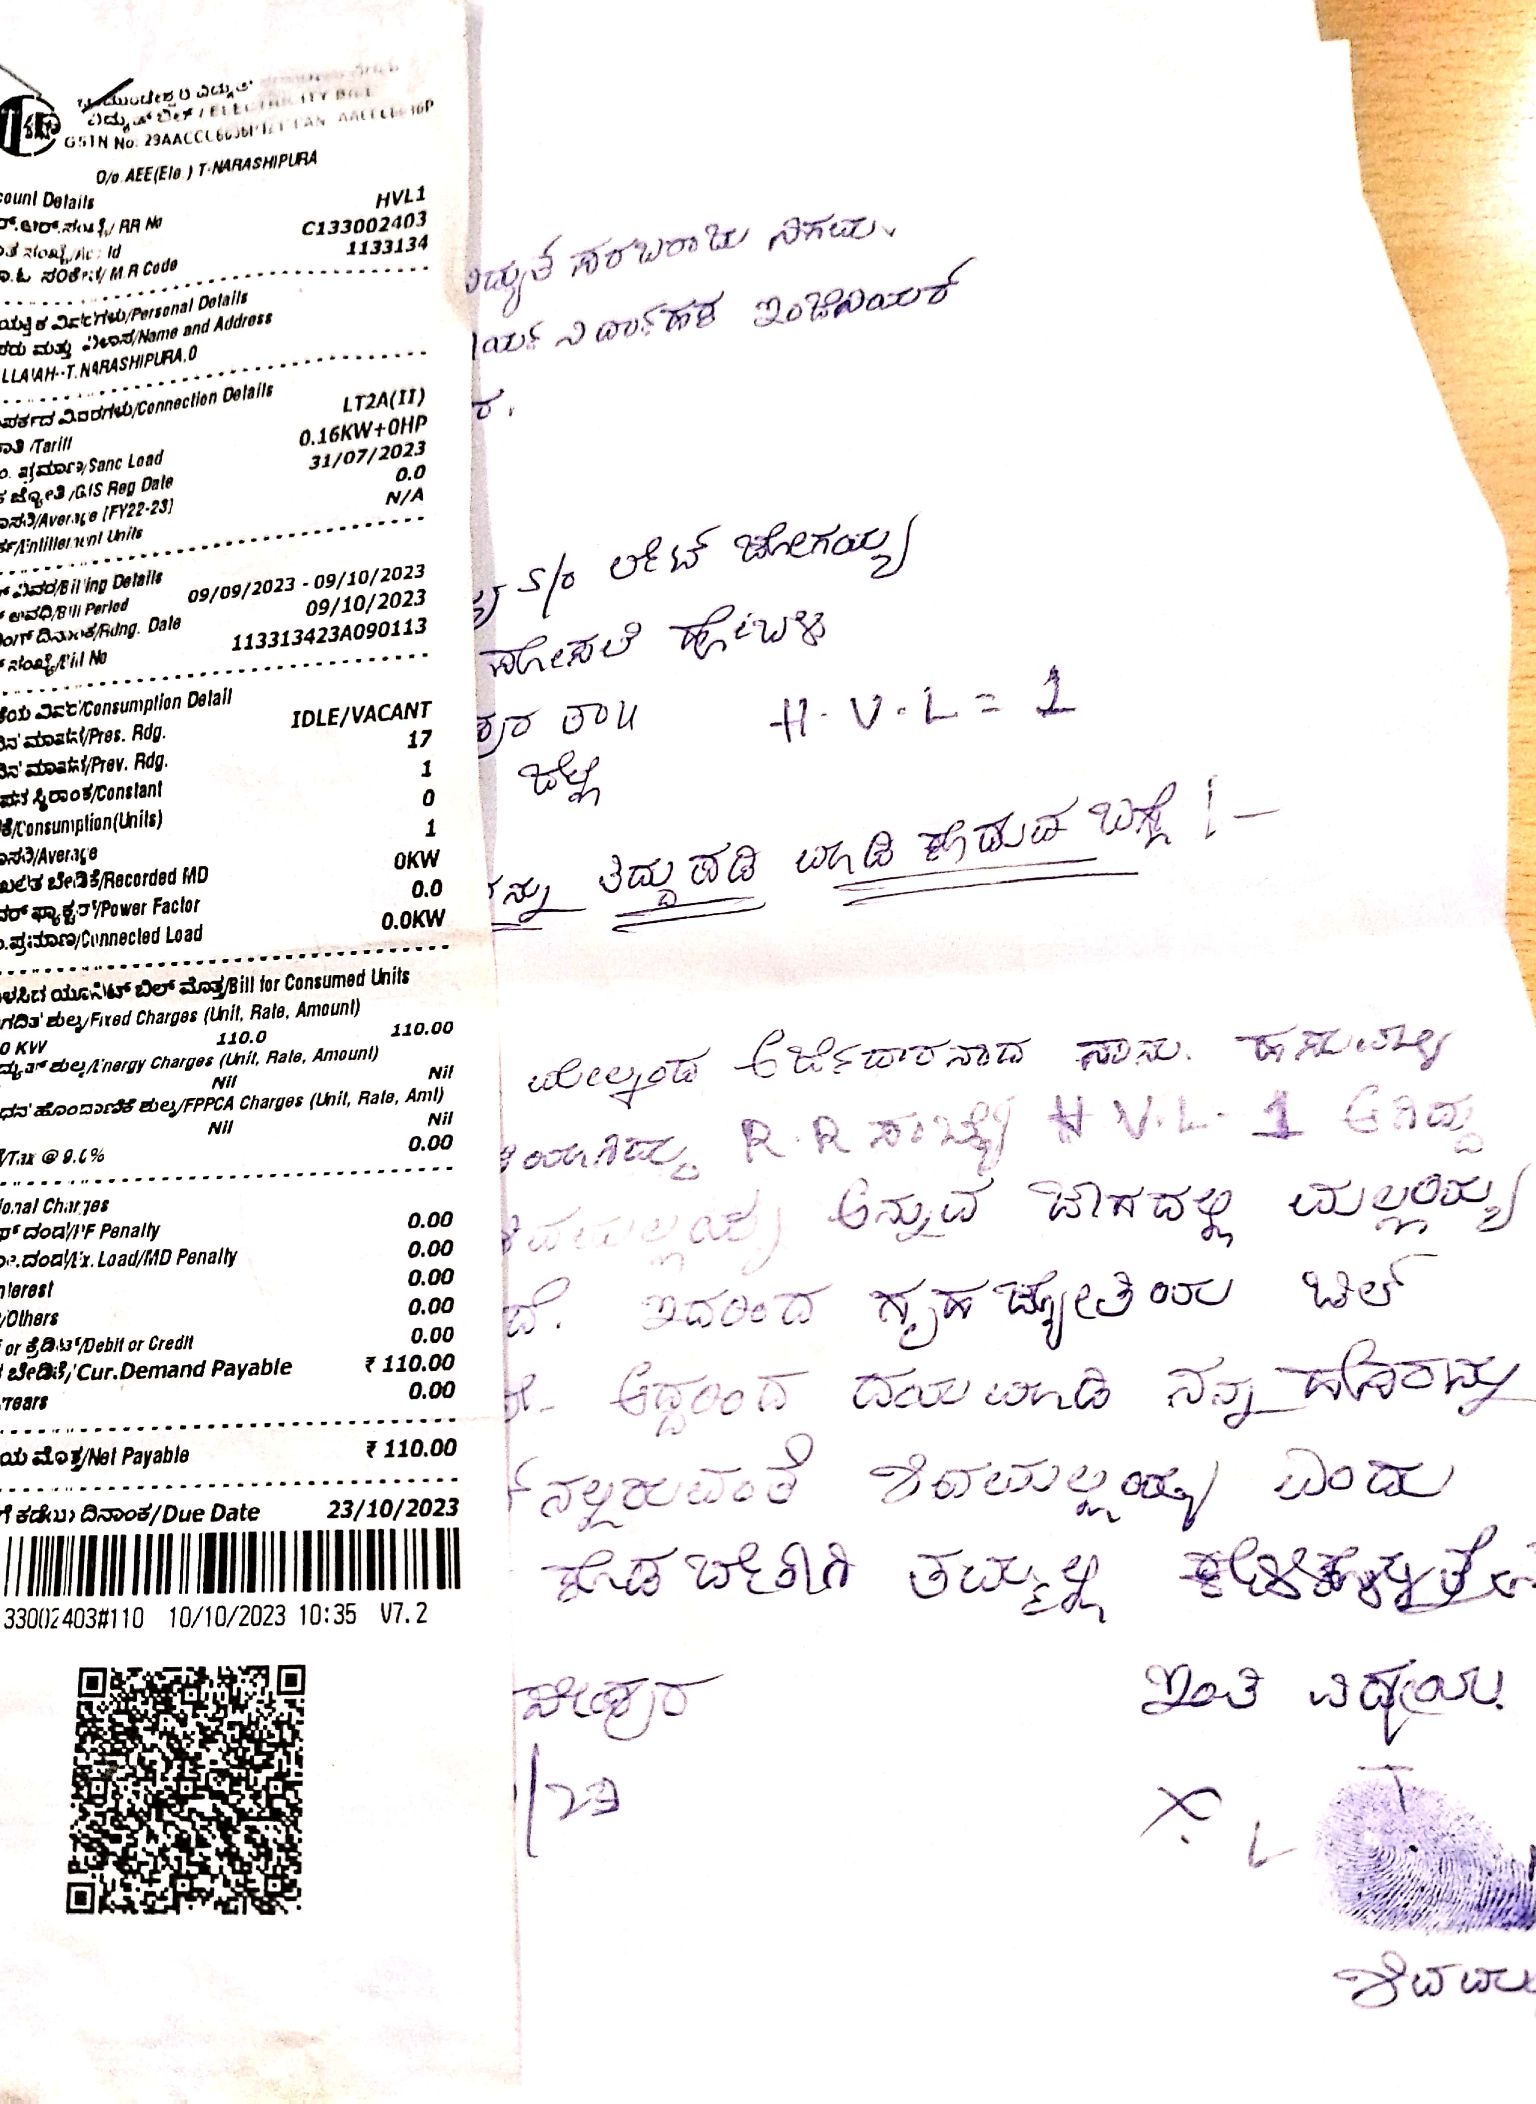 ವಿದ್ಯುತ್ ಬಿಲ್ / ELECTRICITY BILL
GSTN No. 29AACCC6636P1Z1 PAN
O/o AEE(Ele.) T-NARASHIPURA
count Details
ಆರ್.ಸಂಖ್ಯೆ/ RR No HVL1
ಸಂಖ್ಯೆ/Ac Id C133002403
ಓ ಸಂಕೇತ/ M.R Code 1133134
ವಿವರಗಳು/Personal Details
ಮತ್ತು ವಿಳಾಸ/Name and Address
LLAIAH--T.NARASHIPURA,0
ವಿವರಗಳು/Connection Details
/Tariff LT2A(II)
ಪ್ರಮಾಣ/Sanc Load 0.16KW+0HP
ಜ್ಯೋತಿ /GJS Reg Date 31/07/2023
/Average [FY22-23] 0.0
/Entitlement Units N/A
ವಿವರ/Billing Details
ಅವಧಿ/Bill Period 09/09/2023 - 09/10/2023
ದಿನಾಂಕ/Rdng. Date 09/10/2023
ಸಂಖ್ಯೆ/Bill No 113313423A090113
ವಿವರ/Consumption Detail
ಮಾಪನ/Pres. Rdg. IDLE/VACANT
ಮಾಪನ/Prev. Rdg. 17
ಸ್ಥಿರಾಂಕ/Constant 1
/Consumption(Units) 0
/Average 1
ಬೇಡಿಕೆ/Recorded MD 0KW
ಫ್ಯಾಕ್ಟರ್/Power Factor 0.0
ಪ್ರಮಾಣ/Connected Load 0.0KW
ಯೂನಿಟ್ ಬಿಲ್ ಮೊತ್ತ/Bill for Consumed Units
ಶುಲ್ಕ/Fixed Charges (Unit, Rate, Amount)
0 KW 110.0 110.00
ಶುಲ್ಕ/Energy Charges (Unit, Rate, Amount)
Nil Nil
ಹೊಂದಾಣಿಕೆ ಶುಲ್ಕ/FPPCA Charges (Unit, Rate, Amt)
Nil Nil
/Tax @ 9.0% 0.00
onal Charges
ದಂಡ/PF Penalty 0.00
ದಂಡ/Ex. Load/MD Penalty 0.00
nterest 0.00
/Others 0.00
or ಕ್ರೆಡಿಟ್/Debit or Credit 0.00
ಬೇಡಿಕೆ/Cur.Demand Payable ₹ 110.00
rears 0.00
ಮೊತ್ತ/Net Payable ₹ 110.00
ಕಡೆಯ ದಿನಾಂಕ/Due Date 23/10/2023
33002403#110 10/10/2023 10:35 V7.2
ವಿದ್ಯುತ್ ಸರಬರಾಜು ನಿಗಮ.
ಇಂಜಿನಿಯರ್
ರ.
S/o ಲೇಟ್ ಜೋಗಯ್ಯ
ಸೋಸಲೆ ಹೋಬಳಿ
ತಾಃ H.V.L = 1
ಜಿಲ್ಲೆ
ನ್ನು ತಿದ್ದುಪಡಿ ಮಾಡಿ ಕೊಡುವ ಬಗ್ಗೆ :-
ಮೇಲ್ಕಂಡ ಅರ್ಜಿದಾರನಾದ ನಾನು.
R.R ಸಂಖ್ಯೆ H.V.L-1 ಆಗಿದ್ದು
ಶಿವಮಲ್ಲಯ್ಯ ಅನ್ನುವ ಜಾಗದಲ್ಲಿ ಮಲ್ಲಯ್ಯ
ದೆ. ಇದರಿಂದ ಗೃಹಜ್ಯೋತಿಯ ಬಿಲ್
ಆದ್ದರಿಂದ ದಯಮಾಡಿ ನನ್ನ ಹೆಸರನ್ನು
ನಲ್ಲಿರುವಂತೆ ಶಿವಮಲ್ಲಯ್ಯ ಎಂದು
ಕೊಡಬೇಕಾಗಿ ತಮ್ಮಲ್ಲಿ
ಇಂತಿ ವಿಧೇಯ.
/23
L T
ಶಿವಮ